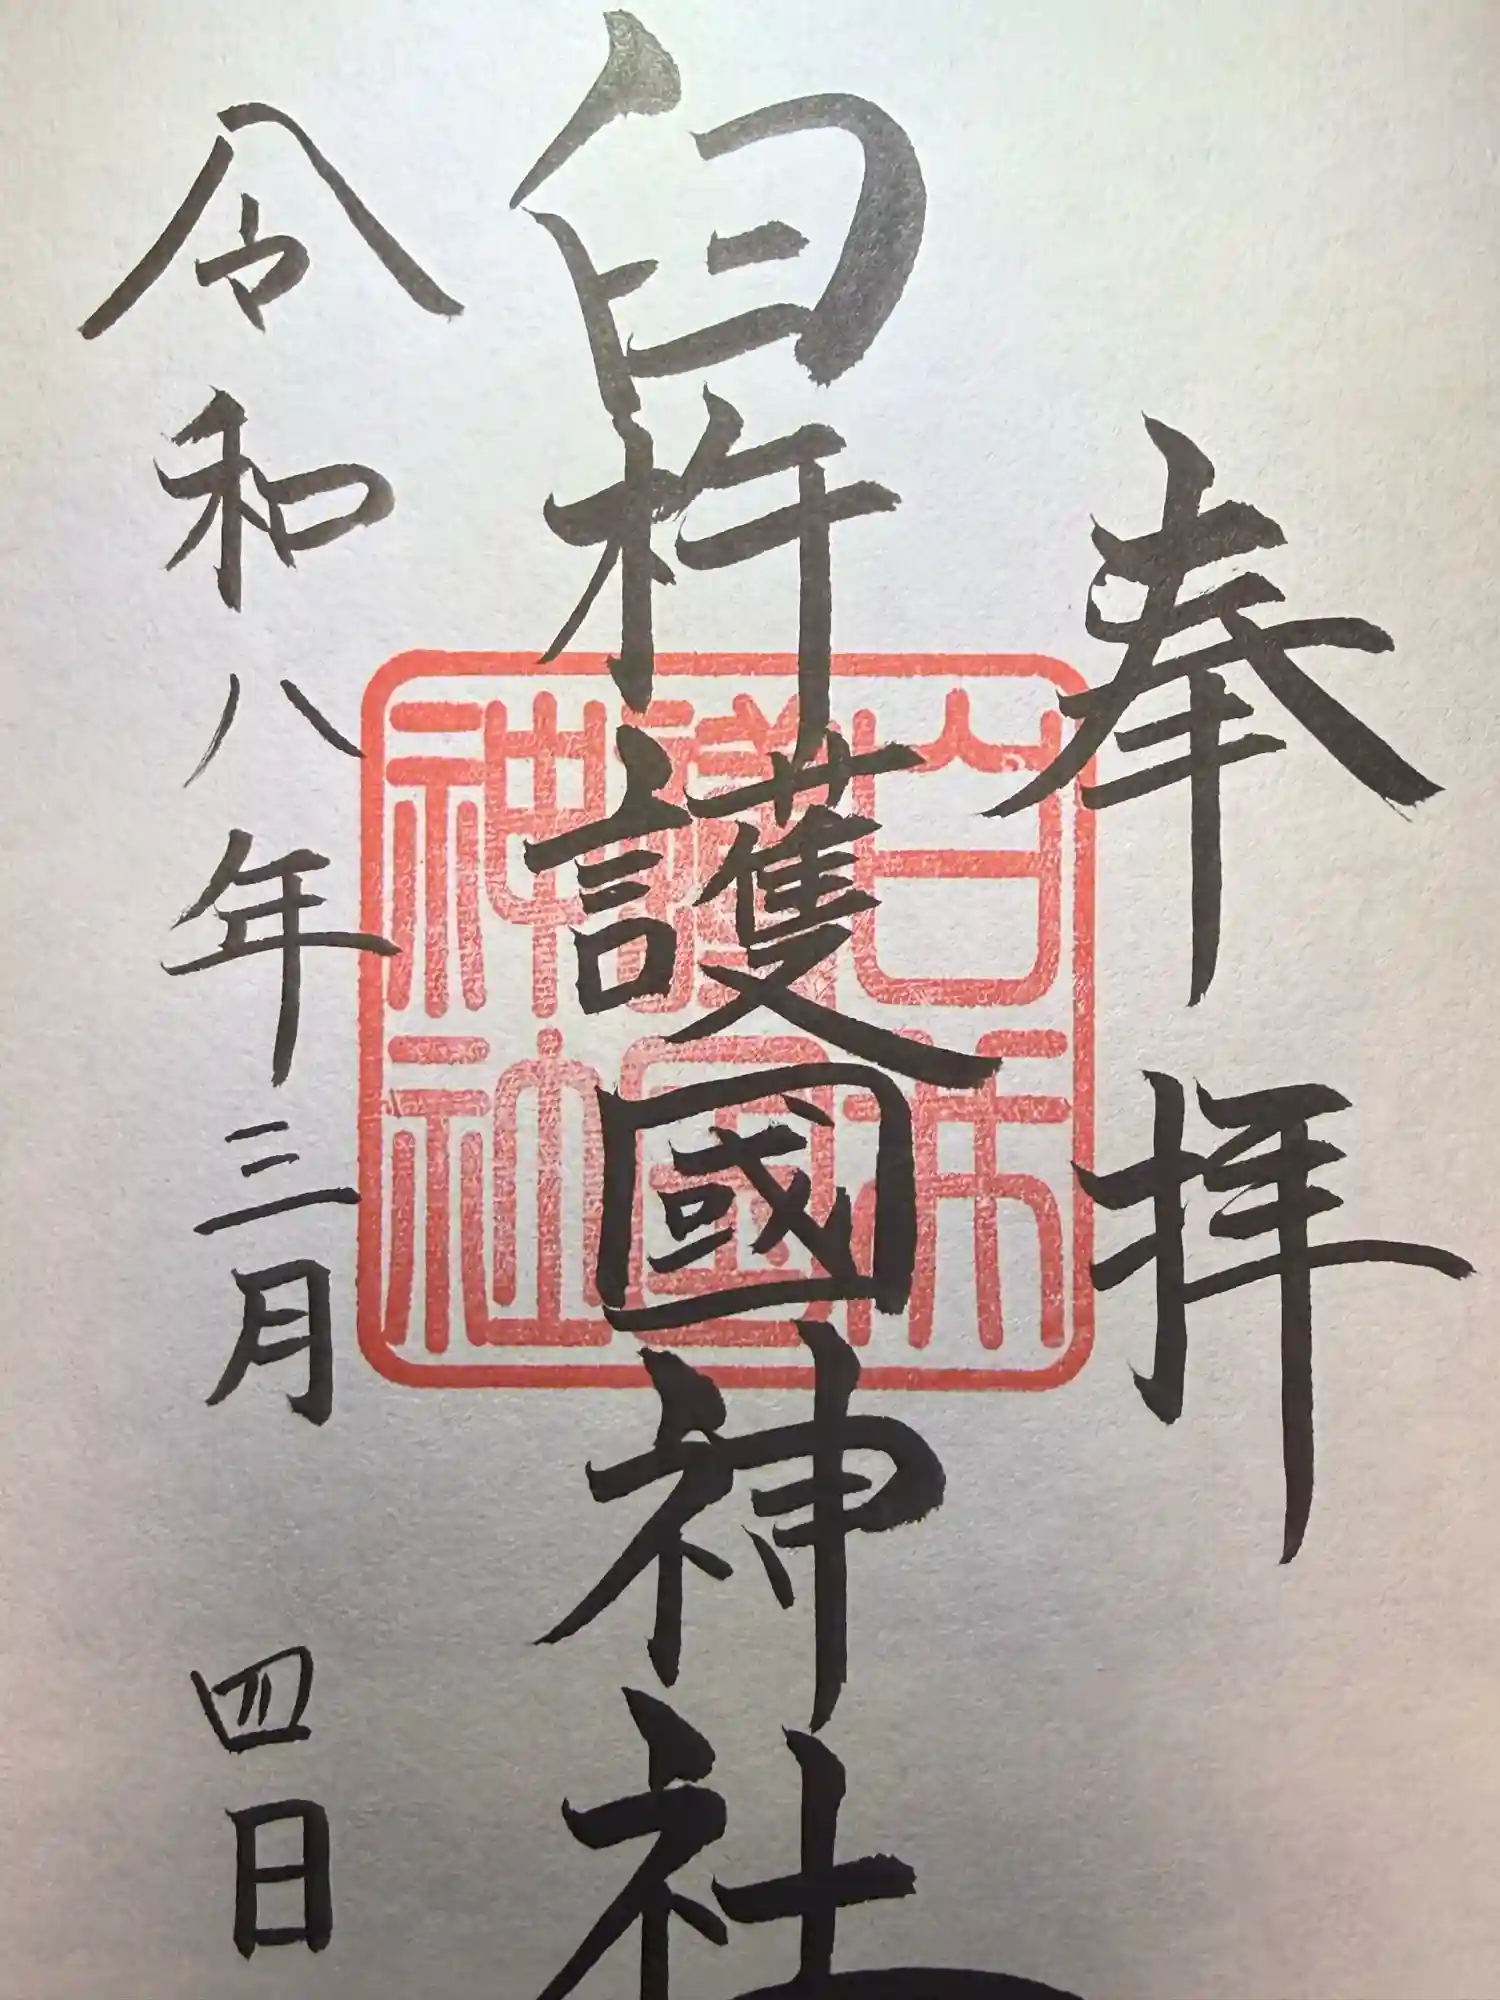 奉拝
臼杵護國神社
臼杵護国神社
令和八年三月四日